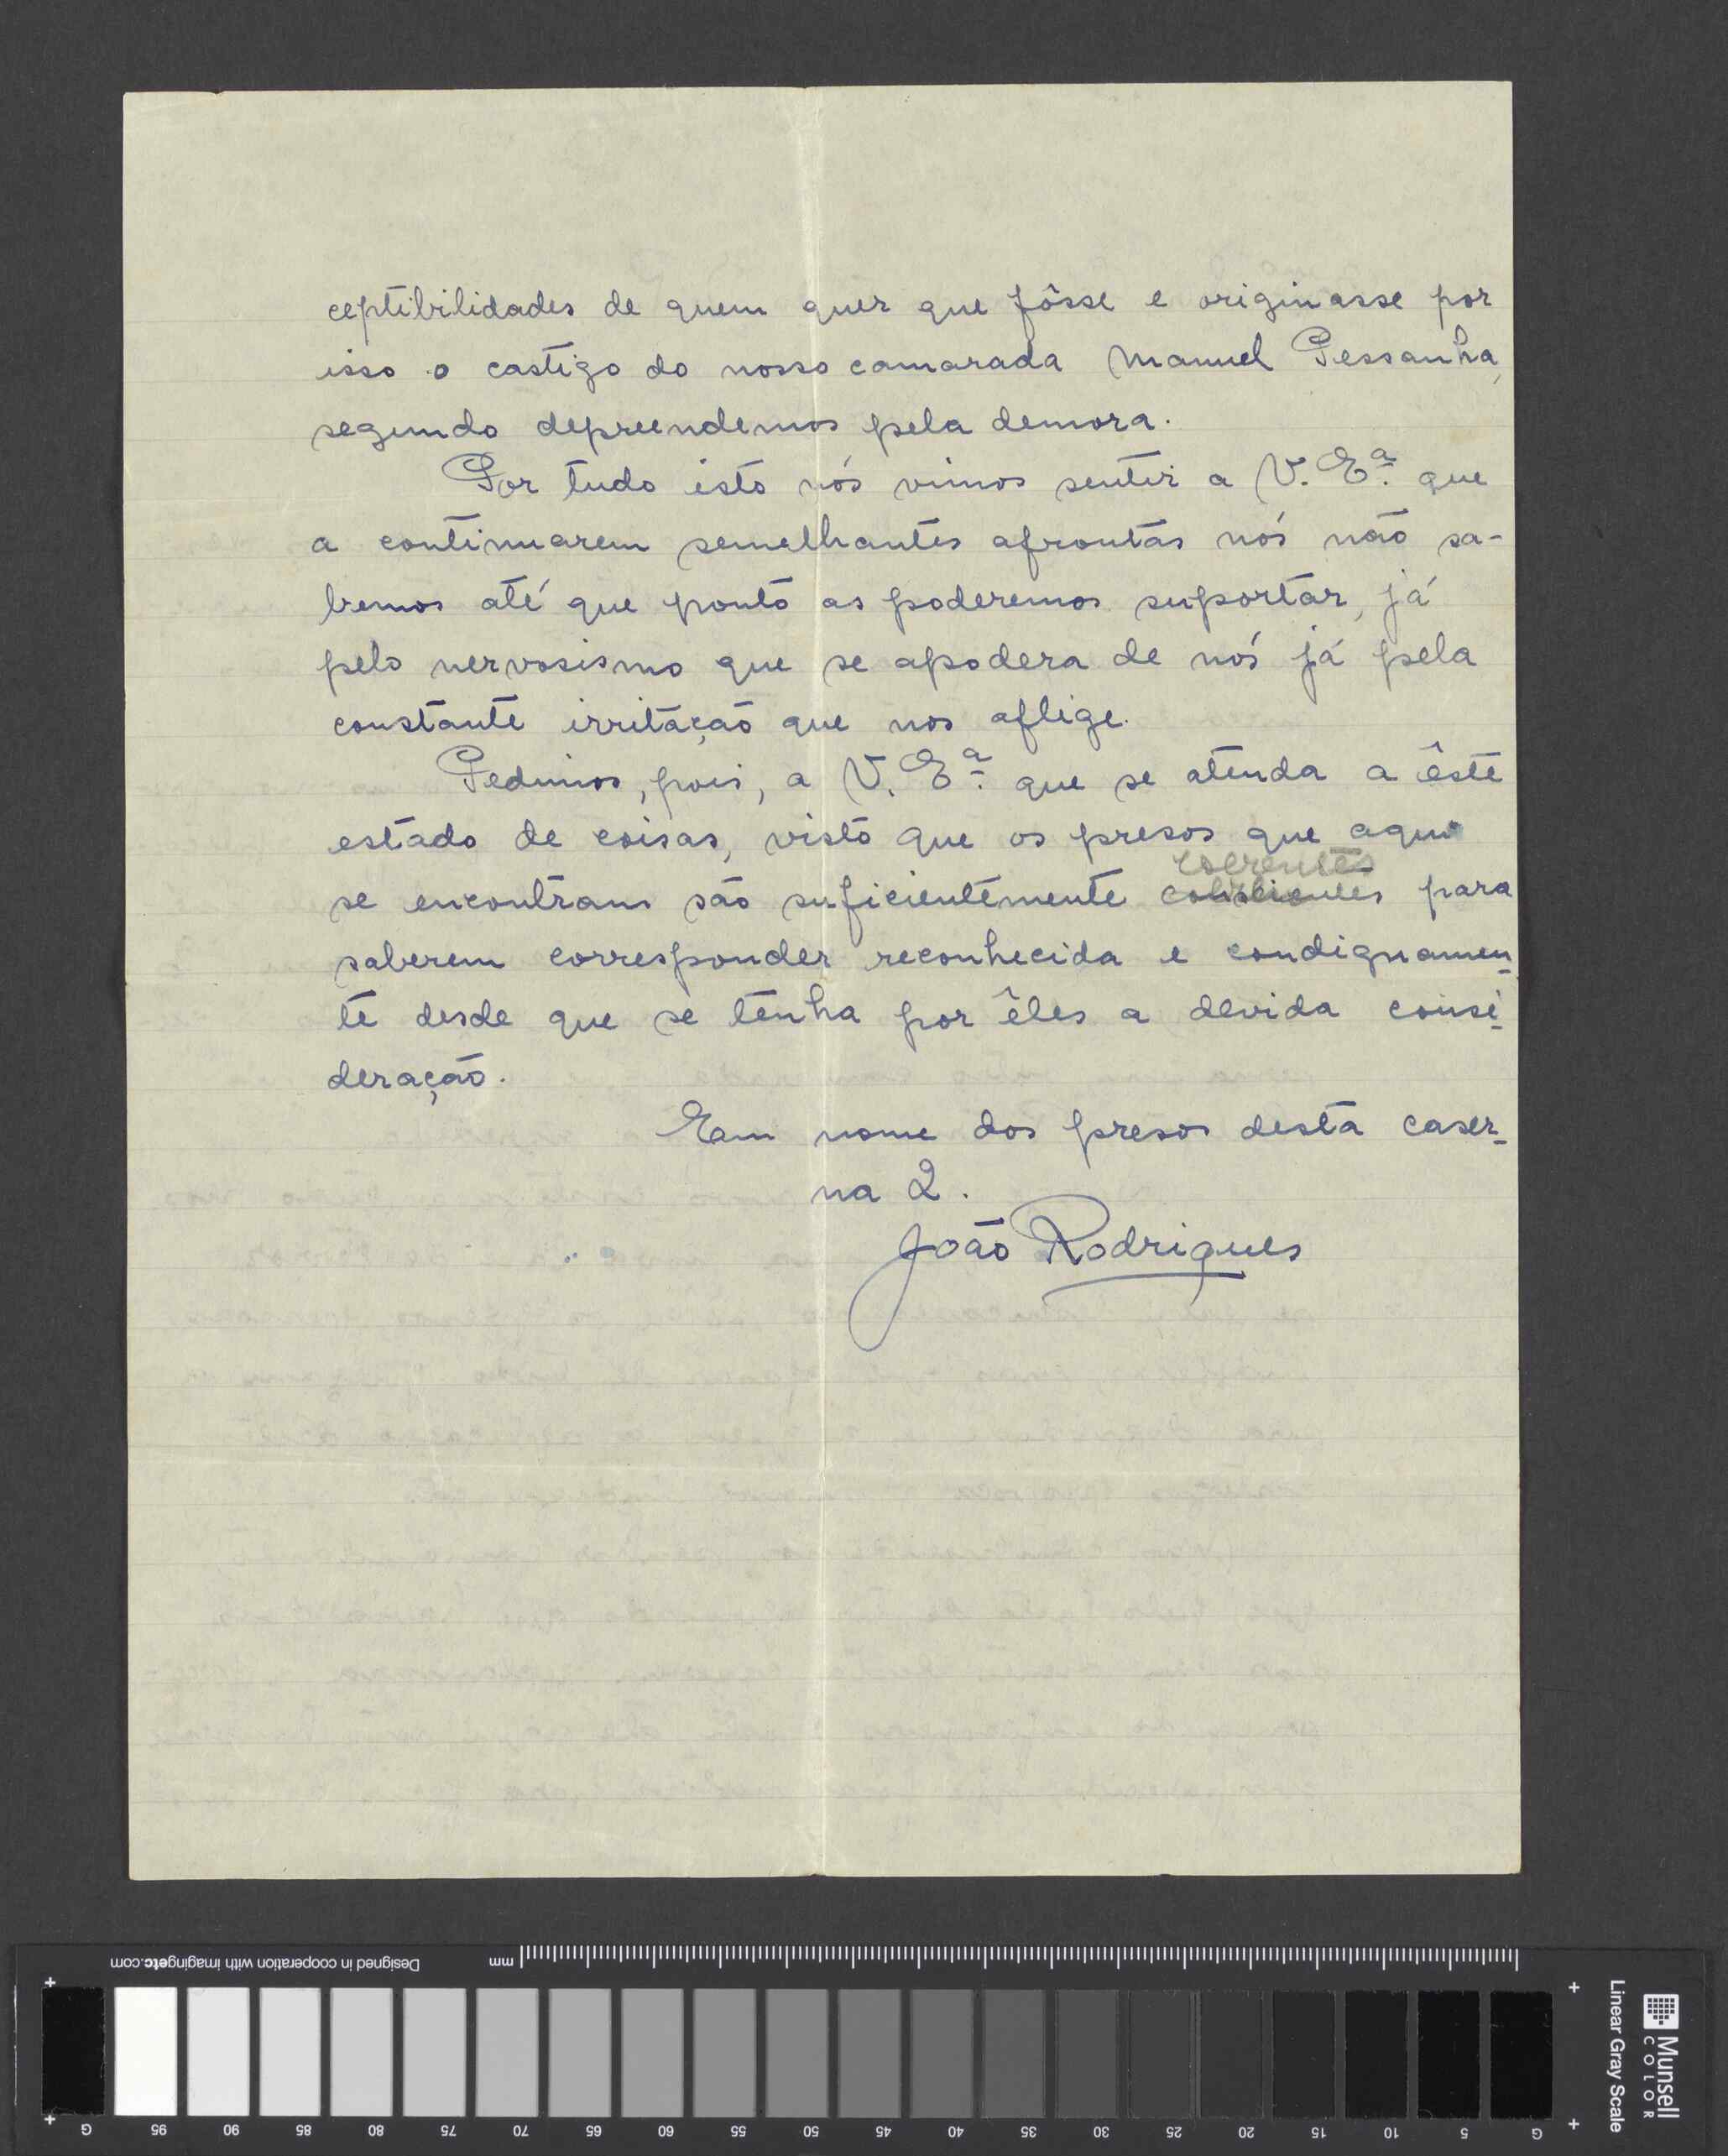 ceptibilidades de quem quer que fôsse e originasse por
isso o castigo do nosso camarada Manuel Pessanha,
segundo depreendemos pela demora.
Por tudo isto nós vimos sentir a V. Eª. que
a continuarem semelhantes afrontas nós não sa-
bemos até que ponto as poderemos suportar, já
pelo nervosismo que se apodera de nós já pela
constante irritação que nos aflige.
Pedimos, pois, a V. Eª. que se atenda a êste
estado de coisas, visto que os presos que aqui
coerentes
se encontram são suficientemente para
saberem corresponder reconhecida e condignamen-
te desde que se tenha por êles a devida consi-
deração.
Em nome dos presos desta caser-
na 2.
João Rodrigues
Designed in cooperation with imagingetc.com
mm
Munsell
COLOR
Linear Gray Scale
G 95 90 85 80 75 70 65 60 55 50 45 40 35 30 25 20 15 10 5 G